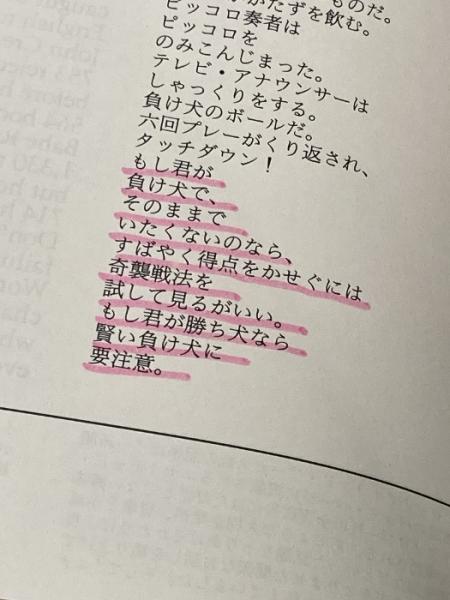 ものだ。
かたずを飲む。
ピッコロ奏者は
ピッコロを
のみこんじまった。
テレビ・アナウンサーは
しゃっくりをする。
負け犬のボールだ。
六回プレーがくり返され、
タッチダウン！
もし君が
負け犬で、
そのままで
いたくないのなら、
すばやく得点をかせぐには
奇襲戦法を
試して見るがいい。
もし君が勝ち犬なら
賢い負け犬に
要注意。